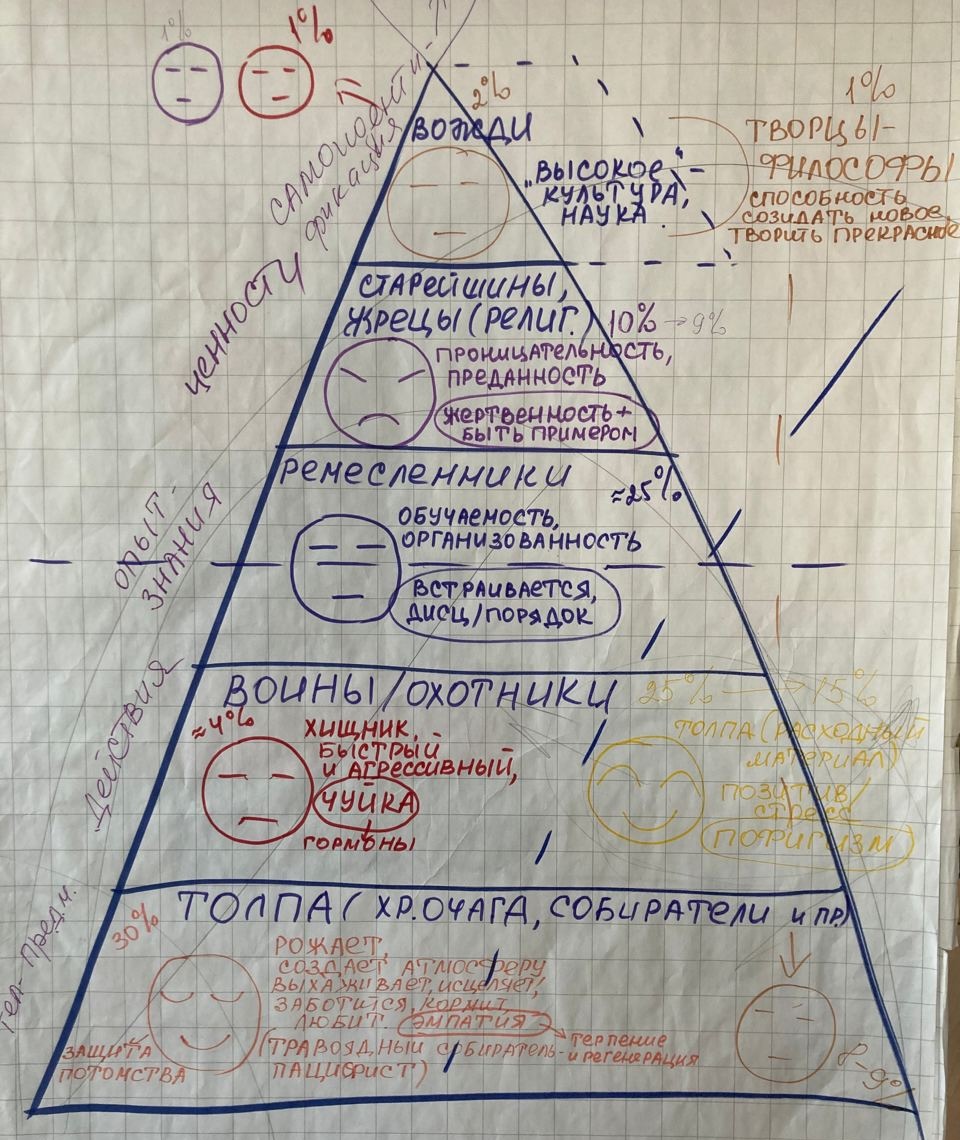 1%
1%
2%
ВОЖДИ
"ВЫСОКОЕ"-
КУЛЬТУРА,
НАУКА.
1%
ТВОРЦЫ-
ФИЛОСОФЫ
СПОСОБНОСТЬ
СОЗИДАТЬ НОВОЕ,
ТВОРИТЬ ПРЕКРАСНОЕ
САМОИДЕНТИ-
ФИКАЦИЯ
ЦЕННОСТИ
СТАРЕЙШИНЫ,
ЖРЕЦЫ (РЕЛИГ.) 10% → 9%
ПРОНИЦАТЕЛЬНОСТЬ,
ПРЕДАННОСТЬ
ЖЕРТВЕННОСТЬ +
БЫТЬ ПРИМЕРОМ
ОПЫТ-
ЗНАНИЯ
РЕМЕСЛЕННИКИ
≈25%
ОБУЧАЕМОСТЬ,
ОРГАНИЗОВАННОСТЬ
ВСТРАИВАЕТСЯ,
ДИСЦ/ПОРЯДОК
ДЕЙСТВИЯ
ВОИНЫ/ОХОТНИКИ
≈4%
ХИЩНИК,
БЫСТРЫЙ
И АГРЕССИВНЫЙ,
ЧУЙКА
ГОРМОНЫ
25% → 15%
ТОЛПА (РАСХОДНЫЙ
МАТЕРИАЛ)
ПОЗИТИВ/
СТРЕСС
ПОФИГИЗМ
ТОЛПА (ХР.ОЧАГА, СОБИРАТЕЛИ И ПР.)
30%
РОЖАЕТ,
СОЗДАЕТ АТМОСФЕРУ,
ВЫХАЖИВАЕТ, ИСЦЕЛЯЕТ,
ЗАБОТИТСЯ, КОРМИТ,
ЛЮБИТ. ЭМПАТИЯ
ТЕРПЕНИЕ
И РЕГЕНЕРАЦИЯ
(ТРАВОЯДНЫЙ СОБИРАТЕЛЬ-
ПАЦИФИСТ)
ЗАЩИТА
ПОТОМСТВА